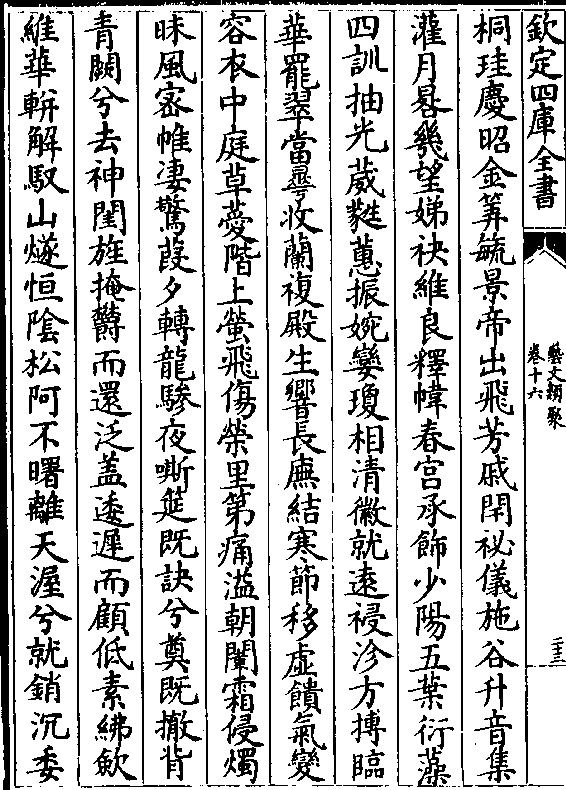 欽定四庫全書
藝文類聚
卷十六
二十三
桐珪慶昭金筭毓景帝出飛芳戚閈祕儀施谷升音集
灌月晷幾望娣袂維良釋幃春宮承飾少陽五葉衍藻
四訓抽光葳蕤蕙振婉孌瓊相清徽就遠祲沴方摶臨
華罷翠當尋收蘭複殿生響長廡結寒節移虛饋氣變
容衣中庭草蔓階上螢飛傷榮里第痛溢朝闈霜侵燭
昧風密帷淒驚葭夕轉龍驂夜嘶筵既訣兮奠既撤背
青闕兮去神閨旌掩欝而還泛盖逶遲而顧低素紼歛
維華軿解馭山燧恒陰松阿不曙離天渥兮就銷沉委